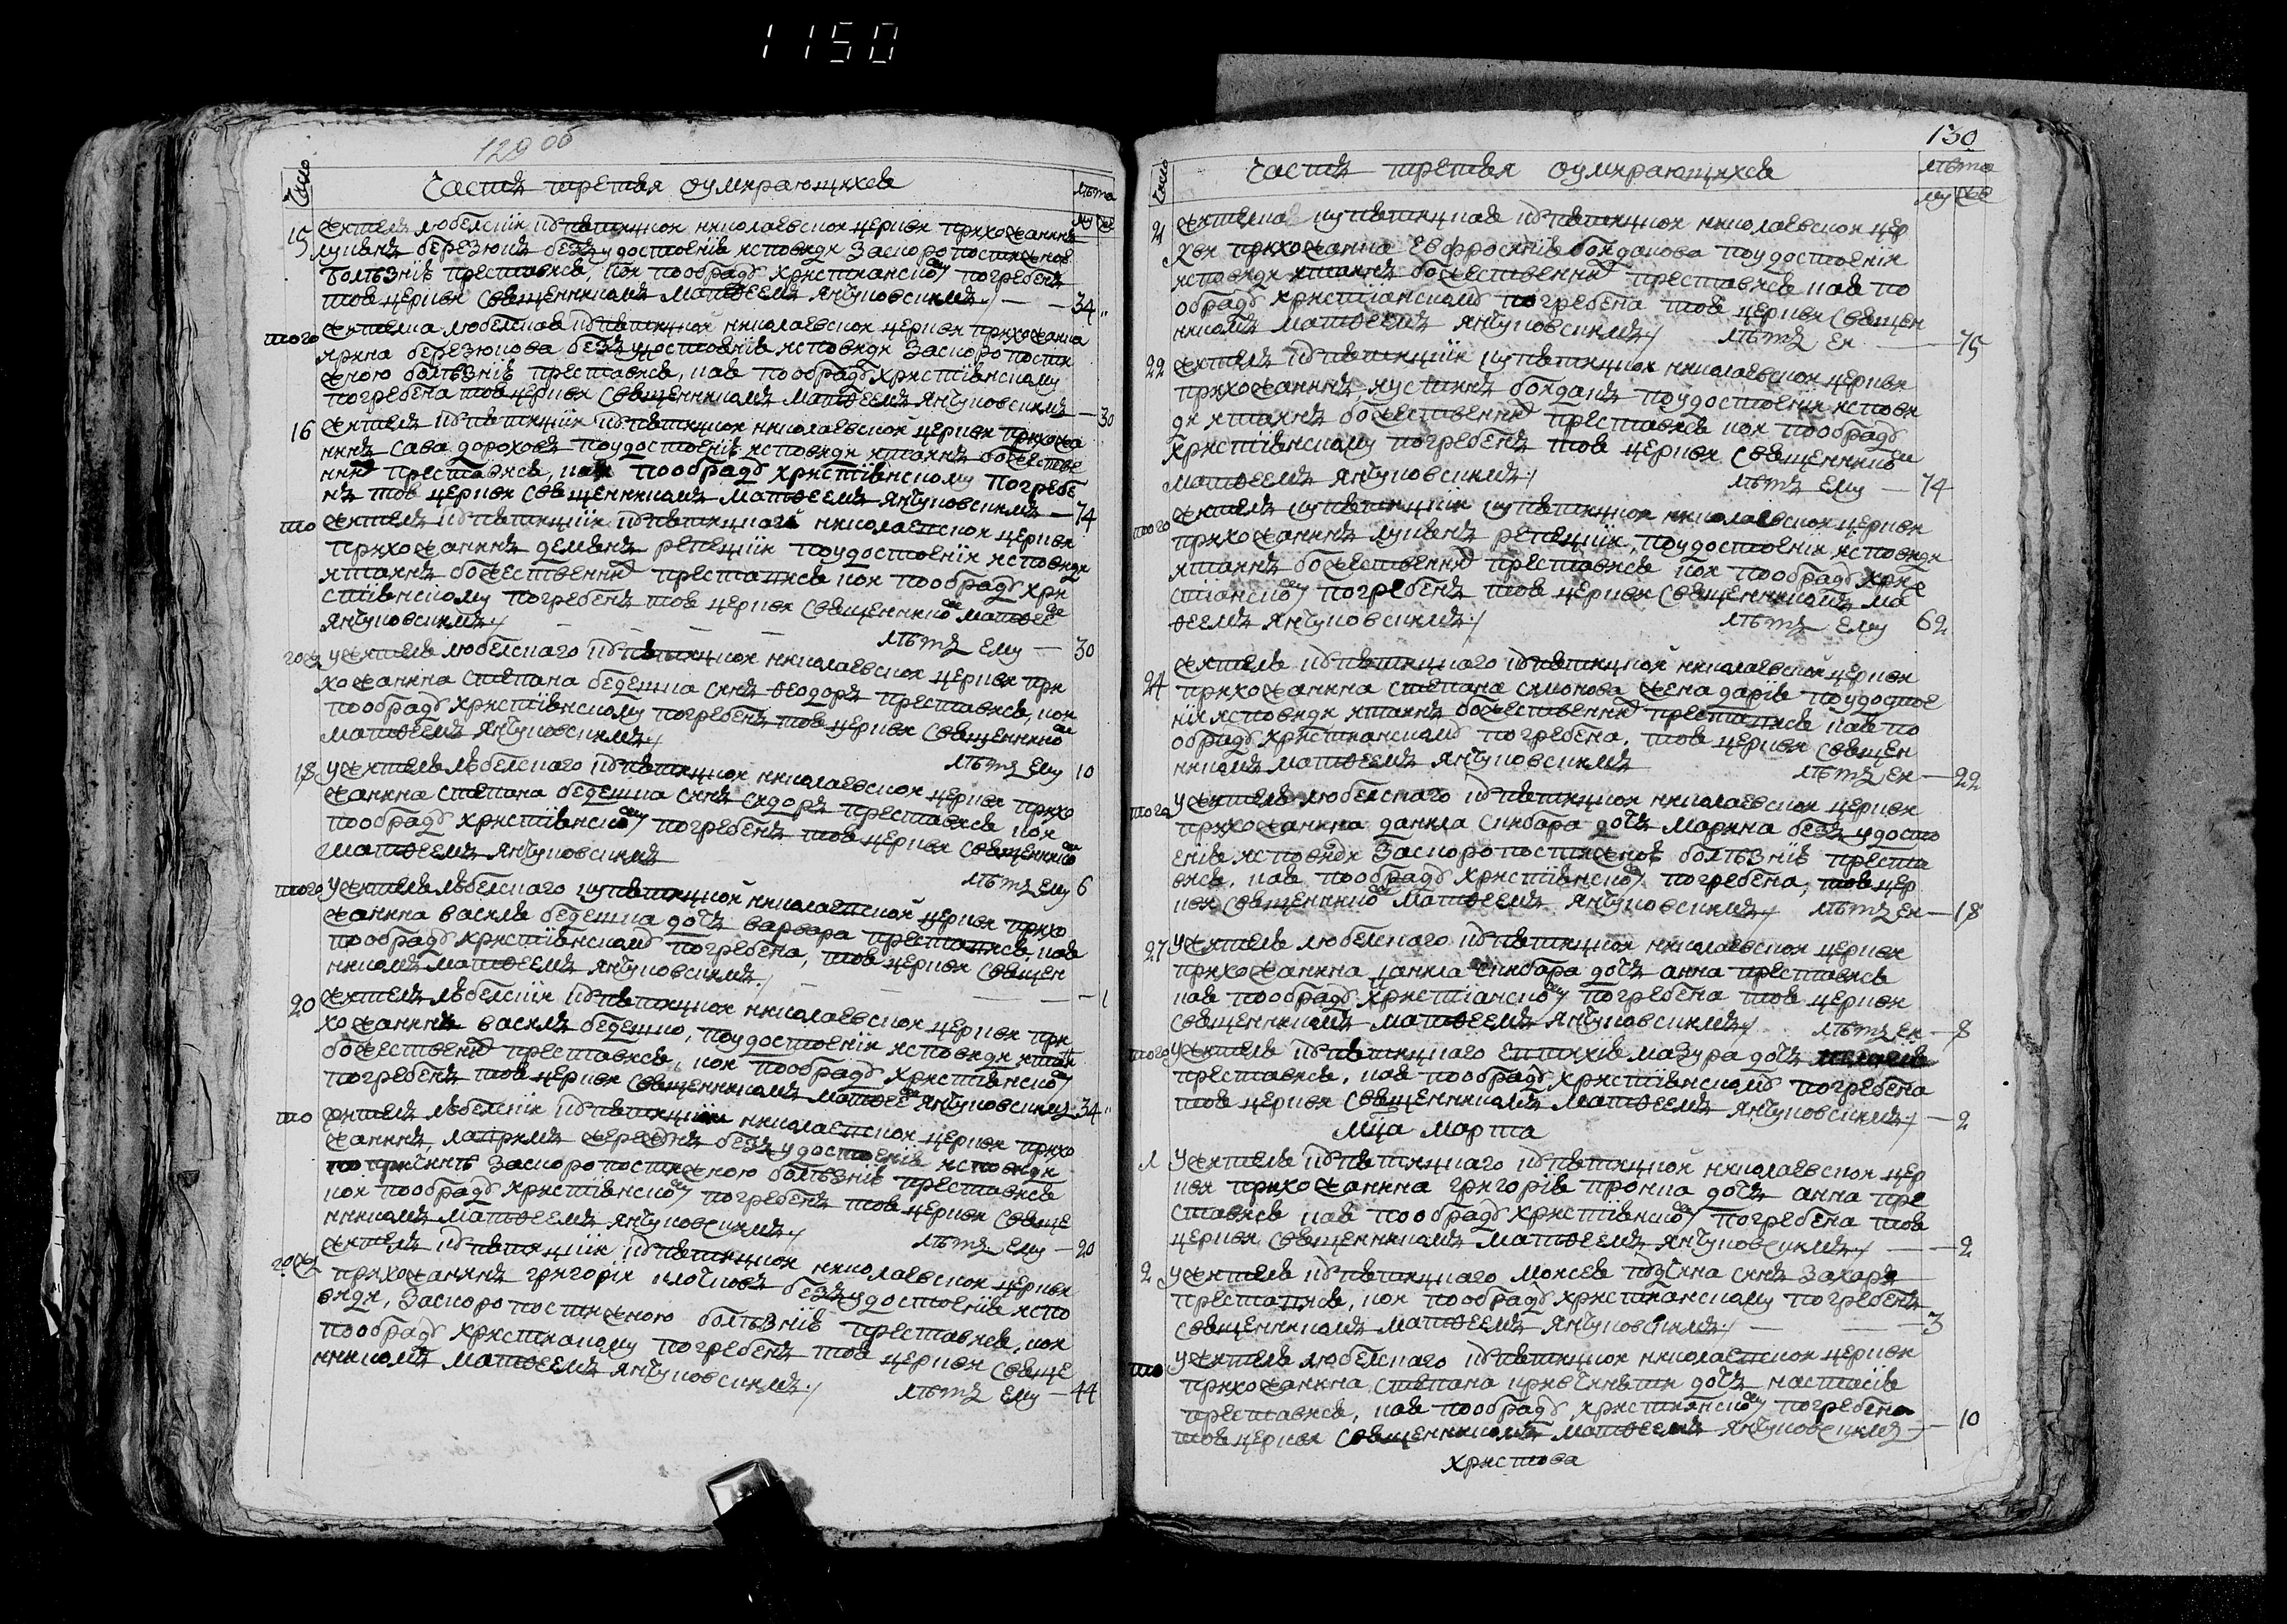 1150
129 об
Число
Часть третья оумирающихся
лѣта
му же
15 житель любелскїи никола­евской церкви прихожанинъ
лукьянъ березюкъ безъ удостоенїя исповѣди заскоропостижное
болѣзнїе преставися, кой пообряду христианскому погребенъ
тоя церкви священникомъ Матфеемъ Янчуковскимъ 34
того жителка любелская николаевской церкви прихожанка
ирина березюкова безъ удостоенїя исповѣди заскоропости
жною болѣзнїе преставися, кая пообряду христїянскому
погребена тоя церкви священникомъ Матфеемъ Янчуковскимъ 30
16 житель николаевской церкви прихожа
нинъ сава дороховъ поудостоенїя исповѣди итаинъ божестве
нныхъ преставися, кой пообряду христїянскому погребе
нъ тоя церкви священникомъ Матфеемъ Янчуковскимъ 74
то житель николаевской церкви
прихожанинъ демянъ поудостоенїи исповѣди
итаинъ божественныхъ преставися кой пообряду хри
стїянскому погребенъ тоя церкви священникомъ Матфеемъ
Янчуковскимъ лѣтъ ему 30
тогожъ ужителя любелского николаевской церкви при
хожанина степана бедешка синъ феодоръ преставися, кой
пообряду христїянскому погребенъ тоя церкви священникомъ
Матфеемъ Янчуковскимъ
лѣтъ ему 10
18 ужителя любелского николаевской церкви прихо
жанина степана бедешка синъ сидоръ преставися кой
пообряду христїянскому погребенъ тоя церкви священникомъ
Матфеемъ Янчуковскимъ
лѣтъ ему 6
того ужителя любелского николаевской церкви прихо
жанина василя бедешка дочъ варвара преставися, кая
пообряду христїянскому погребена, тоя церкви священ
никомъ Матфеемъ Янчуковскимъ 1
20 житель любелскїи николаевской церкви при
хожанинъ василь бедешко, поудостоенїи исповѣди итаинъ
божественныхъ преставися, кой пообряду христїянскому
погребенъ тоя церкви священникомъ Матфеемъ Янчуковскимъ 34
то житель любелскїи николаевской церкви прихо
жанинъ, безъ удостоенїя исповѣди
попричинѣ заскоропостижною болѣзнїе преставися
кой пообряду христїянскому погребенъ тоя церкви свяще
нникомъ Матфеемъ Янчуковскимъ
лѣтъ ему 20
тогожъ житель николаевской церкви
прихожанинъ григорїи безъ удостоенїя испо
вѣди, заскоропостижною болѣзнїе преставися, кой
пообряду погребенъ тоя церкви свяще
нникомъ Матфеемъ Янчуковскимъ
лѣтъ ему 44
130
Число
Часть третья оумирающихся
лѣта
му же
21 жителка николаевской цер
кви прихожанка Евфросинїя богданова поудостоенїи
исповѣди итаинъ божественныхъ преставися кая по
обряду христїанскому погребена тоя церкви священ
никомъ Матфеемъ Янчуковскимъ лѣтъ Ей 75
22 житель николаевской церкви
прихожанинъ иустинъ богданъ поудостоенїи исповѣ
ди итаинъ божественныхъ преставися кой пообряду
христїянскому погребенъ тоя церкви священникомъ
Матфеемъ Янчуковскимъ лѣтъ ему 74
того житель николаевской церкви
прихожанинъ лукьянъ поудостоенїи исповѣди
итаинъ божественныхъ преставися кой пообряду хри
стїанскому погребенъ тоя церкви священникомъ Ма
тфеемъ Янчуковскимъ лѣтъ Ему 62
24 жителя николаевской церкви
прихожанина степана симонова жена дарїя поудостое
нїи исповѣди итаинъ божественныхъ преставися кая по
обряду христианскому погребена, тоя церкви священ
никомъ Матфеемъ Янчуковскимъ лѣтъ Ей 22
того ужителя любелского николаевской церкви
прихожанина данила синбора дочъ марина безъ удосто
енїя исповѣди заскоропостижное болѣзнїе преста
вися, кая пообряду христїянскому погребена, тоя цер
кви священникомъ Матфеемъ Янчуковскимъ лѣтъ Ей 18
27 ужителя любелского николаевской церкви
прихожанина данила синбора дочъ анна преставися
кая пообряду христїанскому погребена тоя церкви
священникомъ Матфеемъ Янчуковскимъ лѣтъ Ей 8
того ужителя Евтихїя мазура дочъ
преставися, кая пообряду христїянскому погребена
тоя церкви священникомъ Матфеемъ Янчуковскимъ 2
Мца Марта
1 ужителя николаевской цер
кви прихожанина григорїя дочъ анна пре
ставися кая пообряду христїянскому погребена тоя
церкви священникомъ Матфеемъ Янчуковскимъ 2
2 ужителя Моисея синъ захаръ
преставися, кой пообряду христианскому погребенъ
священникомъ Матфеемъ Янчуковскимъ 3
то ужителя любелского николаевской церкви
прихожанина степана дочъ настасїя
преставися, кая пообряду христианскому погребена
тоя церкви священникомъ Матфеемъ Янчуковскимъ 10
христова